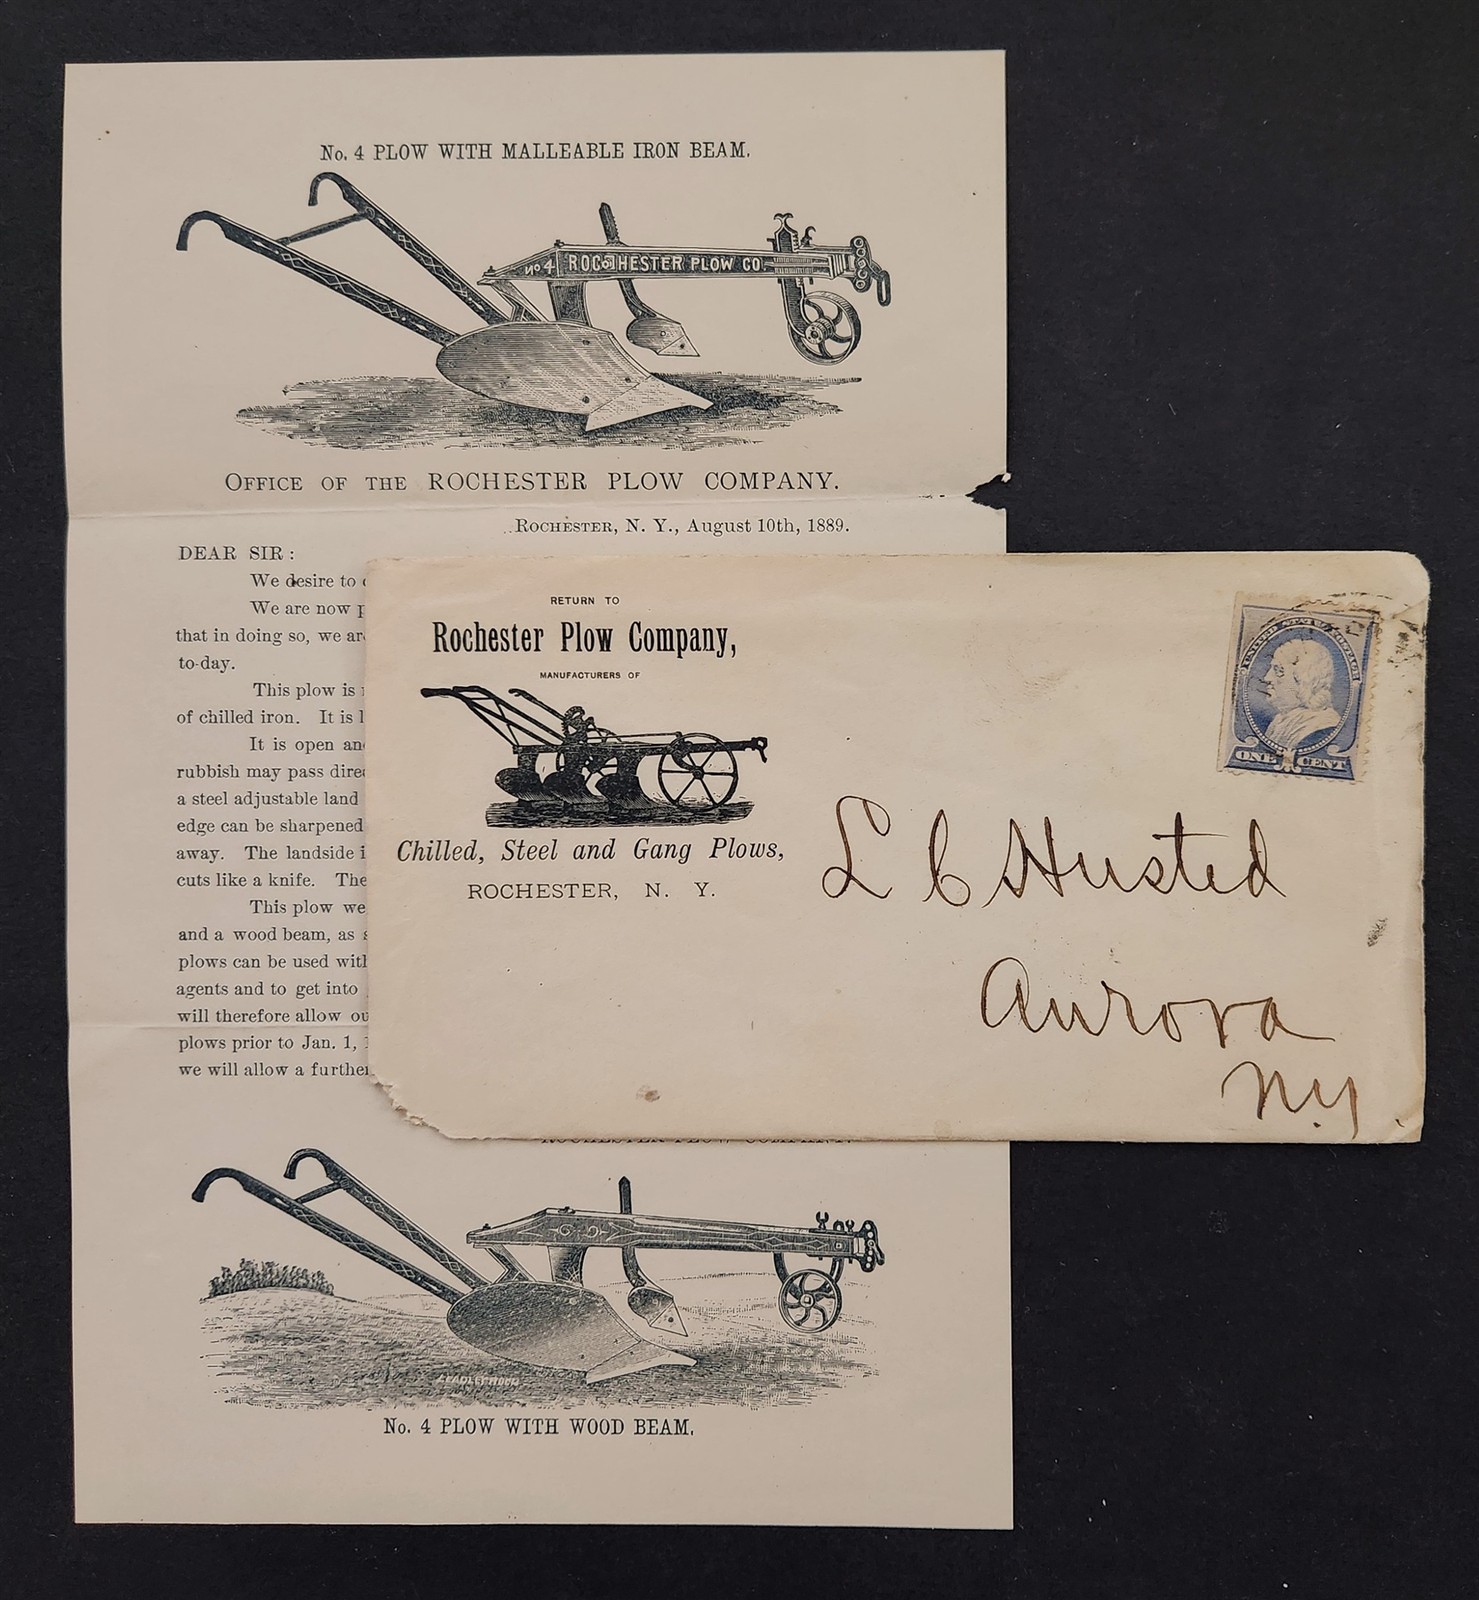 No. 4 PLOW WITH MALLEABLE IRON BEAM.
No 4 ROCHESTER PLOW CO.
OFFICE OF THE ROCHESTER PLOW COMPANY.
ROCHESTER, N. Y., August 10th, 1889.
DEAR SIR:
We desire to
We are now
that in doing so, we
to-day.
This plow is
of chilled iron. It is
It is open
rubbish may pass
a steel adjustable land
edge can be sharpened
away. The landside
cuts like a knife. The
This plow we
and a wood beam, as
plows can be used
agents and to get into
will therefore allow
plows prior to Jan. 1,
we will allow a
ROCHESTER PLOW COMPANY.
No. 4 PLOW WITH WOOD BEAM.
RETURN TO
Rochester Plow Company,
MANUFACTURERS OF
Chilled, Steel and Gang Plows,
ROCHESTER, N. Y.
UNITED STATES POSTAGE
ONE CENT
L C Husted
Aurora
NY